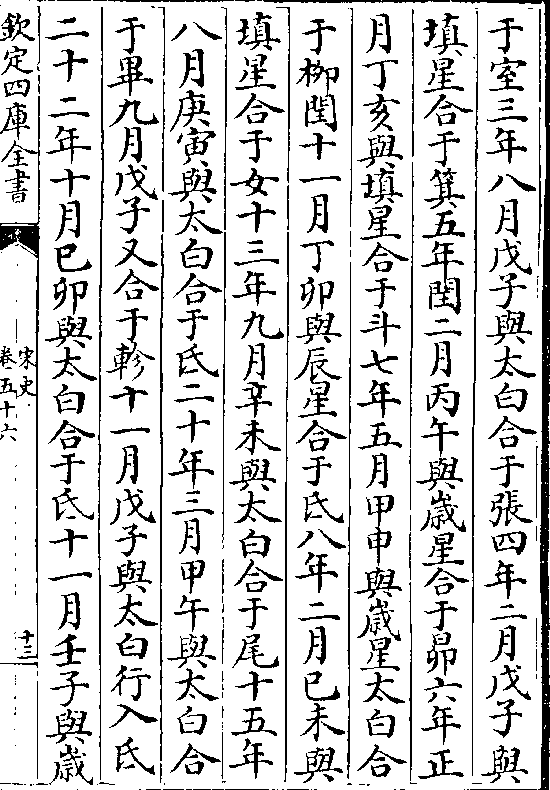 于室三年八月戊子與太白合于張四年二月戊子與
填星合于箕五年閏二月丙午與歳星合于昴六年正
月丁亥與填星合于斗七年五月甲申與歳星太白合
于柳閏十一月丁卯與辰星合于氐八年二月已未與
填星合于女十三年九月辛未與太白合于尾十五年
八月庚寅與太白合于氐二十年三月甲午與太白合
于畢九月戊子又合于軫十一月戊子與太白行入氐
二十二年十月已卯與太白合于氐十一月壬子與歳
欽定四庫全書
宋史
卷五十六
十三